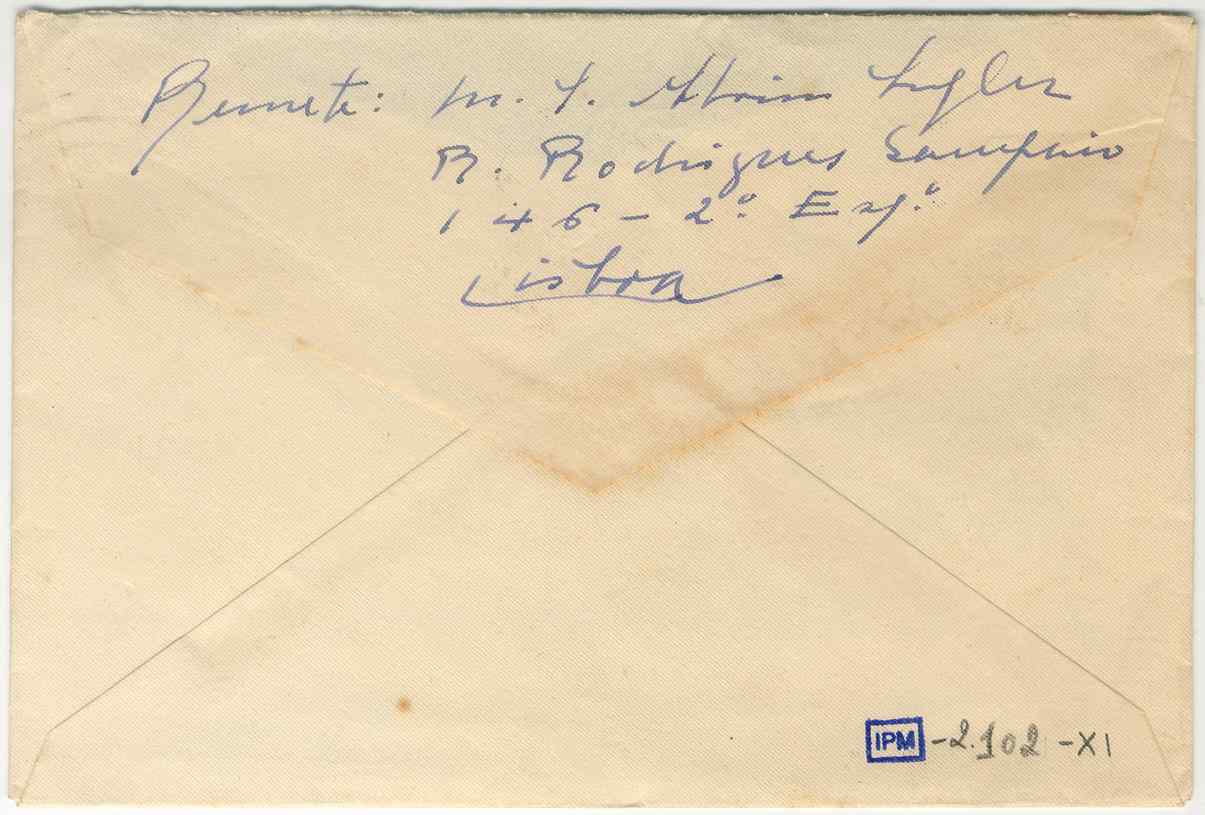 Remete: M. I.
R. Rodrigues Sampaio
146 - 2º Esqº
Lisboa
IPM -2.102 -XI